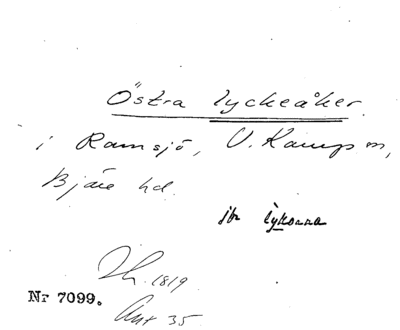 Östra lyckeåker.
i Ramsjö, V. Karup sn,
Bjäre hd.
jfr lyckorna
1819
Nr 7099.
Ant 35